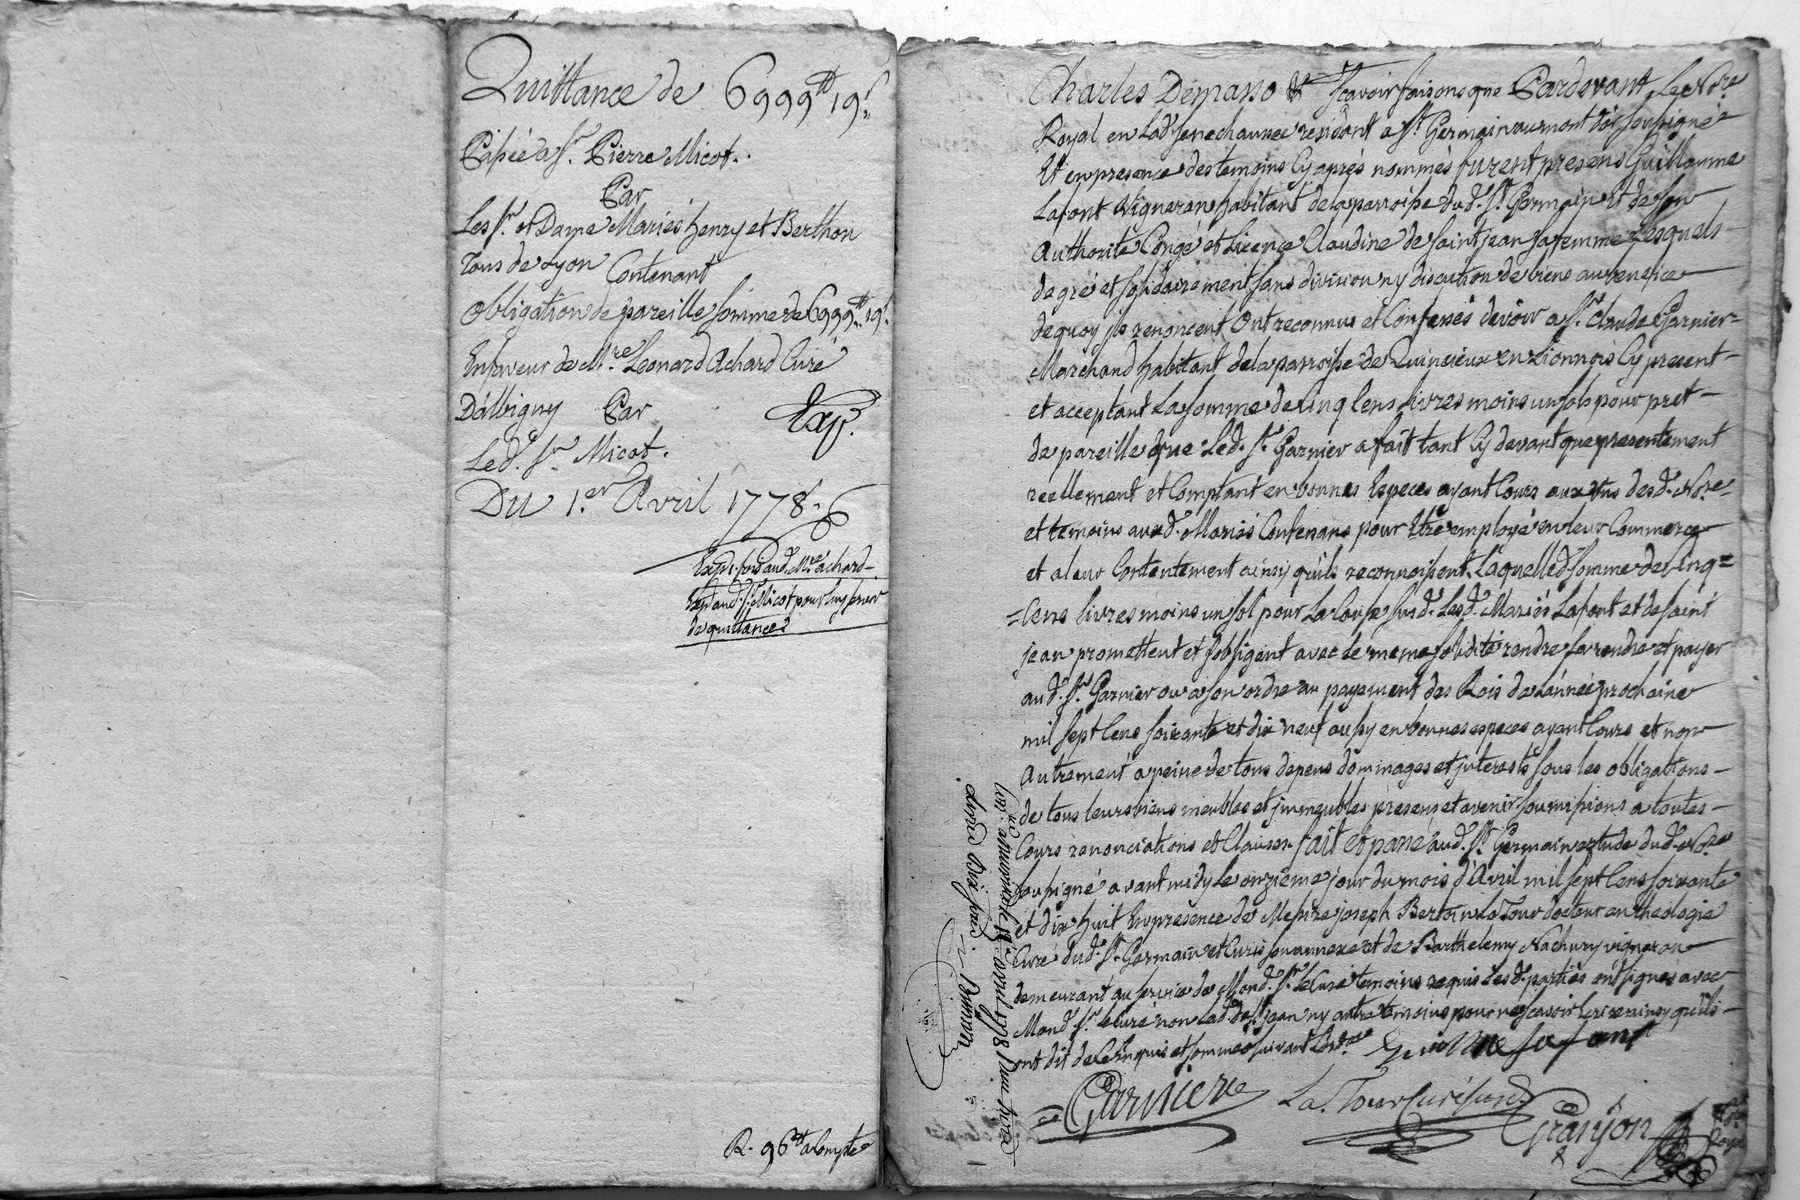 Quittance de 6999tt 19s
Passée a Sr. Pierre Micot.
Par
Les Sr. et Dame Mariés henry et Berthon
Tous de Lyon Contenant
obligation de pareille somme de 6999tt 19s
En faveur de Mre Leonard Achard Curé
D'albigny Par
Exp.
Led. Sr. Micot.
Du 1.er Avril 1778.
Expé. pour aud. Mre achard
Exp. aud. Sr. Micot pour luy servir
de quittance
R. 96tt a Compte
Charles Demasso & Scavoir faisons que Pardevant Le Nore
Royal en Lad. senechaussée residant a St. Germain au mont d'or soussigné
Et en presence des temoins Cy après nommés furent presens Guillaume
Lafont Vigneron habitant de la parroisse dud. St. Germain et de son
Authorité Congé et Licence Claudine de Saint jean sa femme Lesquels
de gré et solidairement sans division ny discution de biens au benefice
de quoy ils renoncent Ont reconnus et Confessés devoir a Sr. Claude Garnier
Marchand habitant de la parroisse de Quincieux en Lionnois Cy present
et acceptant La somme de Cinq Cens Livres moins un sols pour pret
de pareille que Led. Sr. Garnier a fait tant Cy devant que presentement
réellement et Comptant en bonnes Especes ayant Cours aux vus desd. Nore
et temoins auxd. Mariés Contenans pour Etre employé en leur Commerce
et a leur Contentement ainsy qu'ils reconnoissent. Laquelle d. somme de Cinq
Cens livres moins un sol pour La Cause susd. Lesd. Mariés Lafont et de saint
jean promettent et s'obligent avec le meme solidité rendre et payer
aud. Sr. Garnier ou a son ordre au payement des Rois de L'année prochaine
mil sept Cens soixante et dix neuf aussy en bonnes especes ayant Cours et non
Autrement a peine de tous depens dommages et interests sous les obligations
de tous leurs biens meubles et immeubles presens et avenir soumissions a toutes
Cours renonciations et Clauses. fait et passé aud. St. Germain etude dud. Nore
soussigné avant midy Le onzième jour du mois d'Avril mil sept Cens soixante
et dix huit En presence de Messire joseph Bertin La Tour docteur en theologie
Curé dud. St. Germain et Curis son annexe et de Barthelemy Nachury vigneron
demeurant au service de Mond. Sr. Le Curé temoins requis Lesd. parties ont signés avec
Mond. Sr. le Curé non Lad. de St. jean ny autre temoins pour ne scavoir Ecrire ainsy qu'ils
ont dit de Ce enquis et sommés suivant L'ordce
Guillaume la font
Garnier
La Tour Curé susd.
Granjon
Nore Royal
Con. a neuville le 13 avril 1778